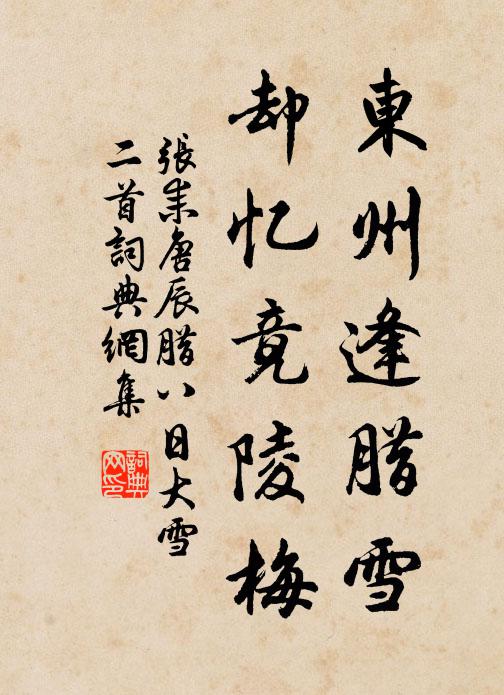 東州逢腊雪
却忆竟陵梅
張耒庚辰腊八日大雪
二首詞典網集
詞典网印